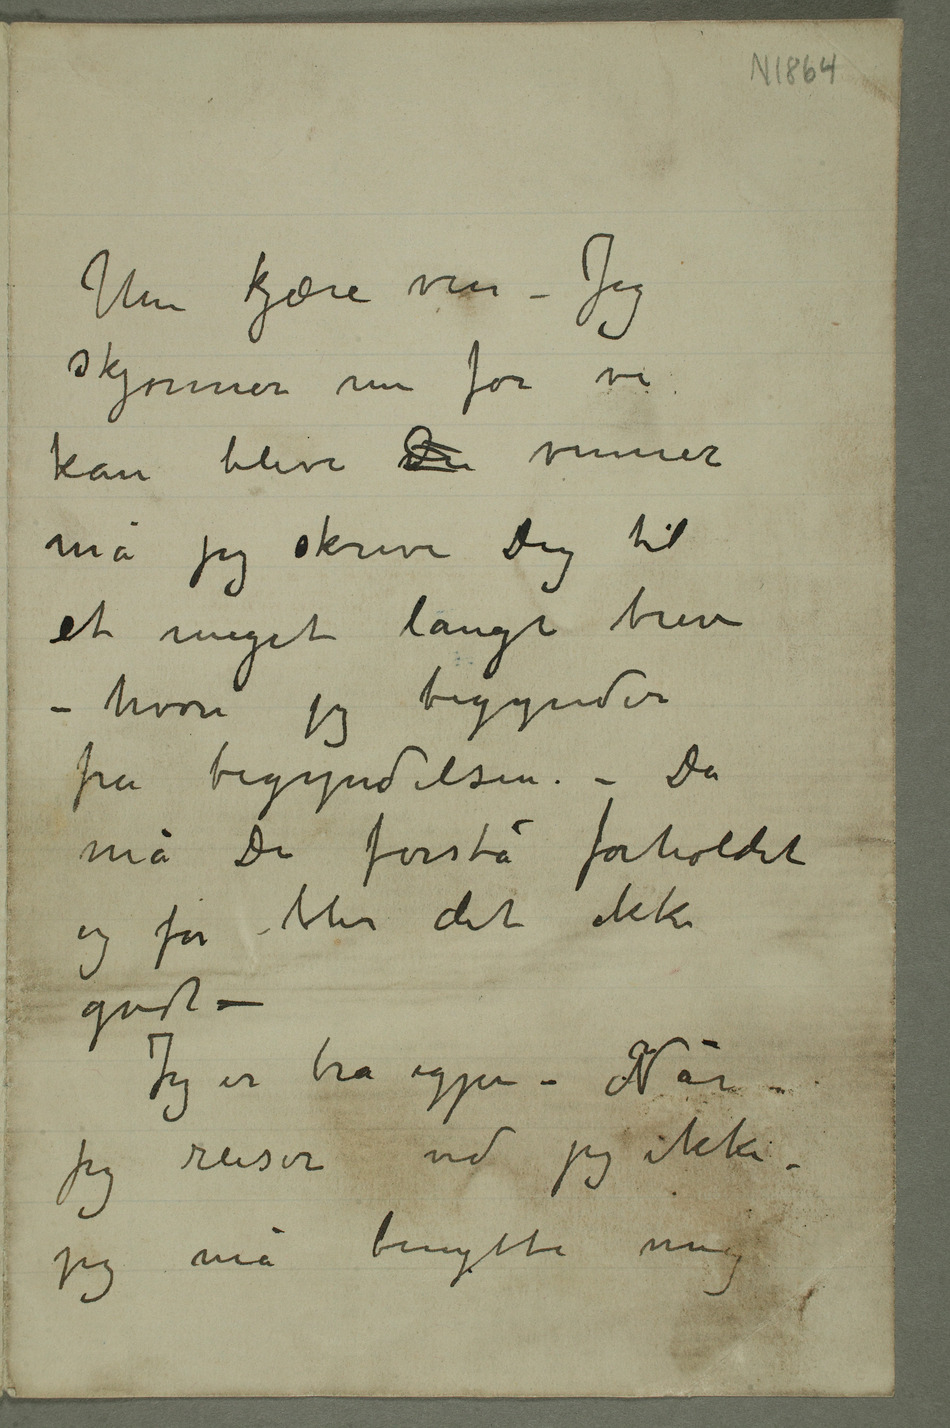 N1864
Min kjære ven – Jeg
skjønner nu før vi
kan blive De venner
må jeg skrive Dig til
et meget langt brev
– hvori jeg begynder
fra begyndelsen. – Da
må Du forstå forholdet
og før blir det ikke
godt –
Jeg er bra igjen – Når –
jeg reiser ved jeg ikke –
jeg må benytte mig